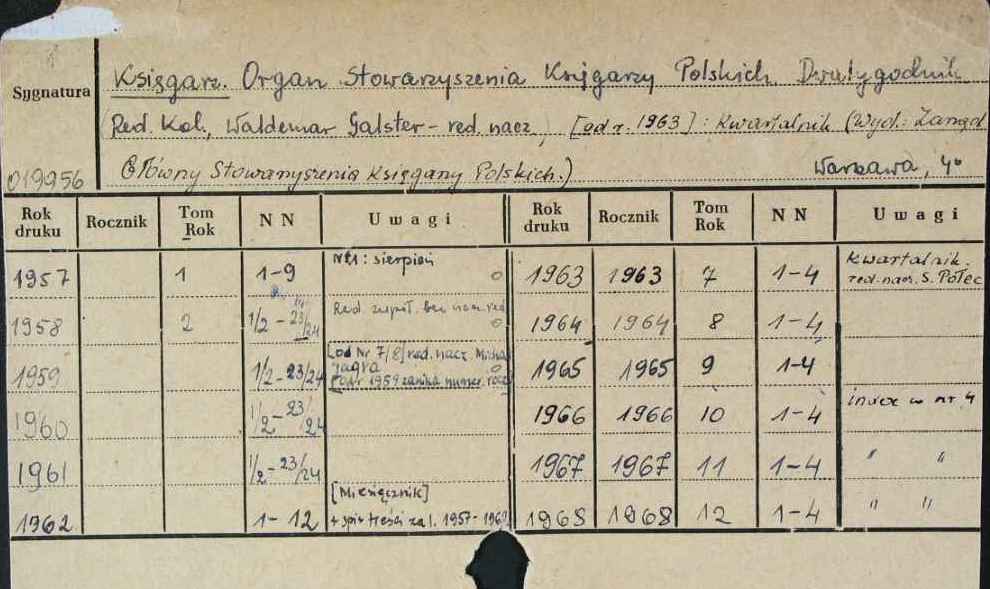 Sygnatura
Księgarz. Organ Stowarzyszenia Księgarzy Polskich. Dwutygodnik
Red. Kol., Waldemar Galster - red. nacz., [od r. 1963]: Kwartalnik (Wyd.: Zarząd
Główny Stowarzyszenia Księgarzy Polskich.) Warszawa, 4°
019956
Rok druku Rocznik Tom Rok NN Uwagi Rok druku Rocznik Tom Rok NN Uwagi
1957 1 1-9 Nr 1: sierpień 1963 1963 7 1-4 Kwartalnik. red. nacz. S. Połec
1958 2 1/2 - 23/24 Red. zesp. bez nacz. red. 1964 1964 8 1-4
1959 1/2 - 23/24 [od Nr 7/8] red. nacz. 1965 1965 9 1-4
1960 1/2 - 23/24 1966 1966 10 1-4 index w nr 4
1961 1/2 - 23/24 1967 1967 11 1-4 " "
1962 1-12 [Miesięcznik] + spis treści za l. 1957-196 1968 1968 12 1-4 " "